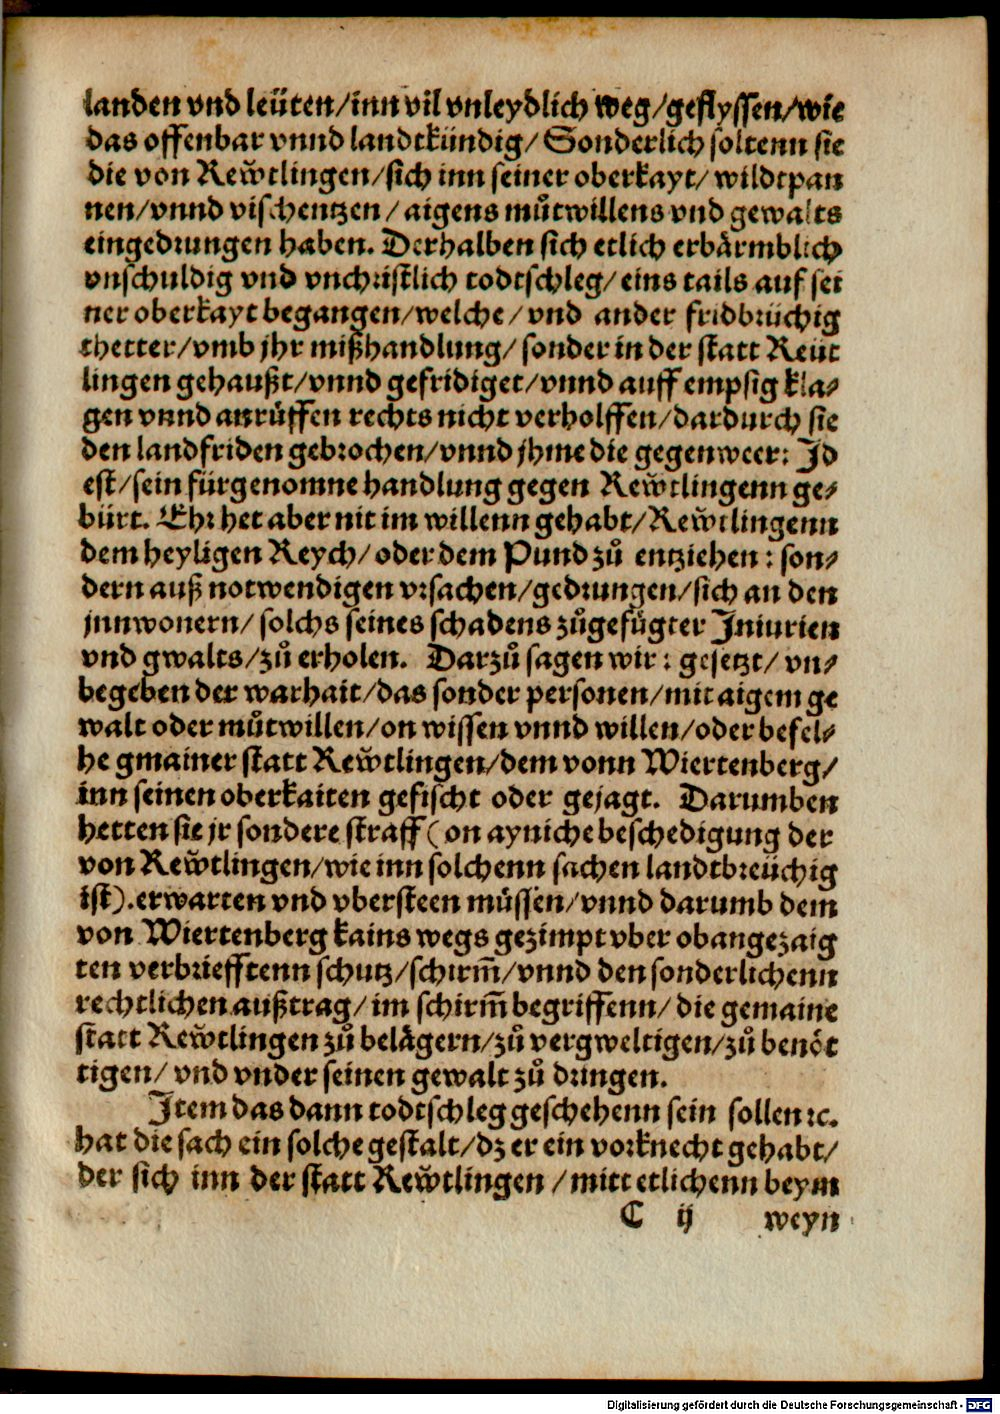 landen vnd leüten/inn vil vnleydlich weg/geflyssen/wie
das offenbar vnnd landtkündig/ Sonderlich soltenn sie
die von Rew̌tlingen/sich inn seiner oberkayt/ wildtpan
nen/vnnd vischentzen/ aigens můtwillens vnd gewalts
eingedrungen haben. Derhalben sich etlich erbärmblich
vnschuldig vnd vnchristlich todtschleg/ eins tails auf sei
ner oberkayt begangen/welche/ vnd ander fridbrüchig
thetter/vmb jhr mißhandlung/ sonder in der statt Reüt
lingen gehaußt/vnnd gefridiget/vnnd auff empsig kla⸗
gen vnnd anrůffen rechts nicht verholffen/dardurch sie
den landfriden gebrochen/vnnd jhme die gegenweer: Id
est/sein fürgenomne handlung gegen Rew̌tlingenn ge⸗
bürt. Ehr het aber nit im willenn gehabt/Rew̌tlingenn
dem heyligen Reych/ oder dem Pund zů entziehen: son⸗
dern auß notwendigen vrsachen/gedrungen/sich an den
jnnwonern/ solchs seines schadens zůgefůgter Iniurien
vnd gwalts/zů erholen. Darzů sagen wir: gesetzt/ vn⸗
begeben der warhait/das sonder personen/mit aigem ge
walt oder můtwillen/on wissen vnnd willen/oder befel⸗
he gmainer statt Rew̌tlingen/dem vonn Wiertenberg/
inn seinen oberkaiten gefischt oder gejagt. Darumben
hetten sie jr sondere straff (on ayniche beschedigung der
von Rew̌tlingen/wie inn solchenn sachen landtbreüchig
ist).erwarten vnd vbersteen müssen/vnnd darumb dem
von Wiertenberg kains wegs gezimpt vber obangezaig
ten verbriefftenn schutz/schirm̃/vnnd den sonderlichenn
rechtlichen außtrag/ im schirm̃ begriffenn/ die gemaine
statt Rew̌tlingen zů belägern/zů vergweltigen/zů benöt
tigen/ vnd vnder seinen gewalt zů dringen.
Item das dann todtschleg geschehenn sein sollen ꝛc.
hat die sach ein solche gestalt/dz er ein vorknecht gehabt/
der sich inn der statt Rew̌tlingen /mitt etlichenn beym
C ij weyn
Digitalisierung gefördert durch die Deutsche Forschungsgemeinschaft - DFG